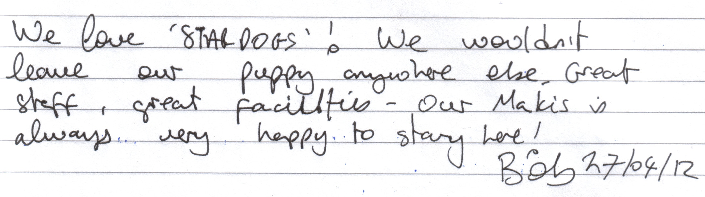 We love 'STARDOGS'! We wouldn't
leave our puppy anywhere else. Great
staff, great facilities - Our Makis is
always very happy to stay here!
Bob 27/04/12